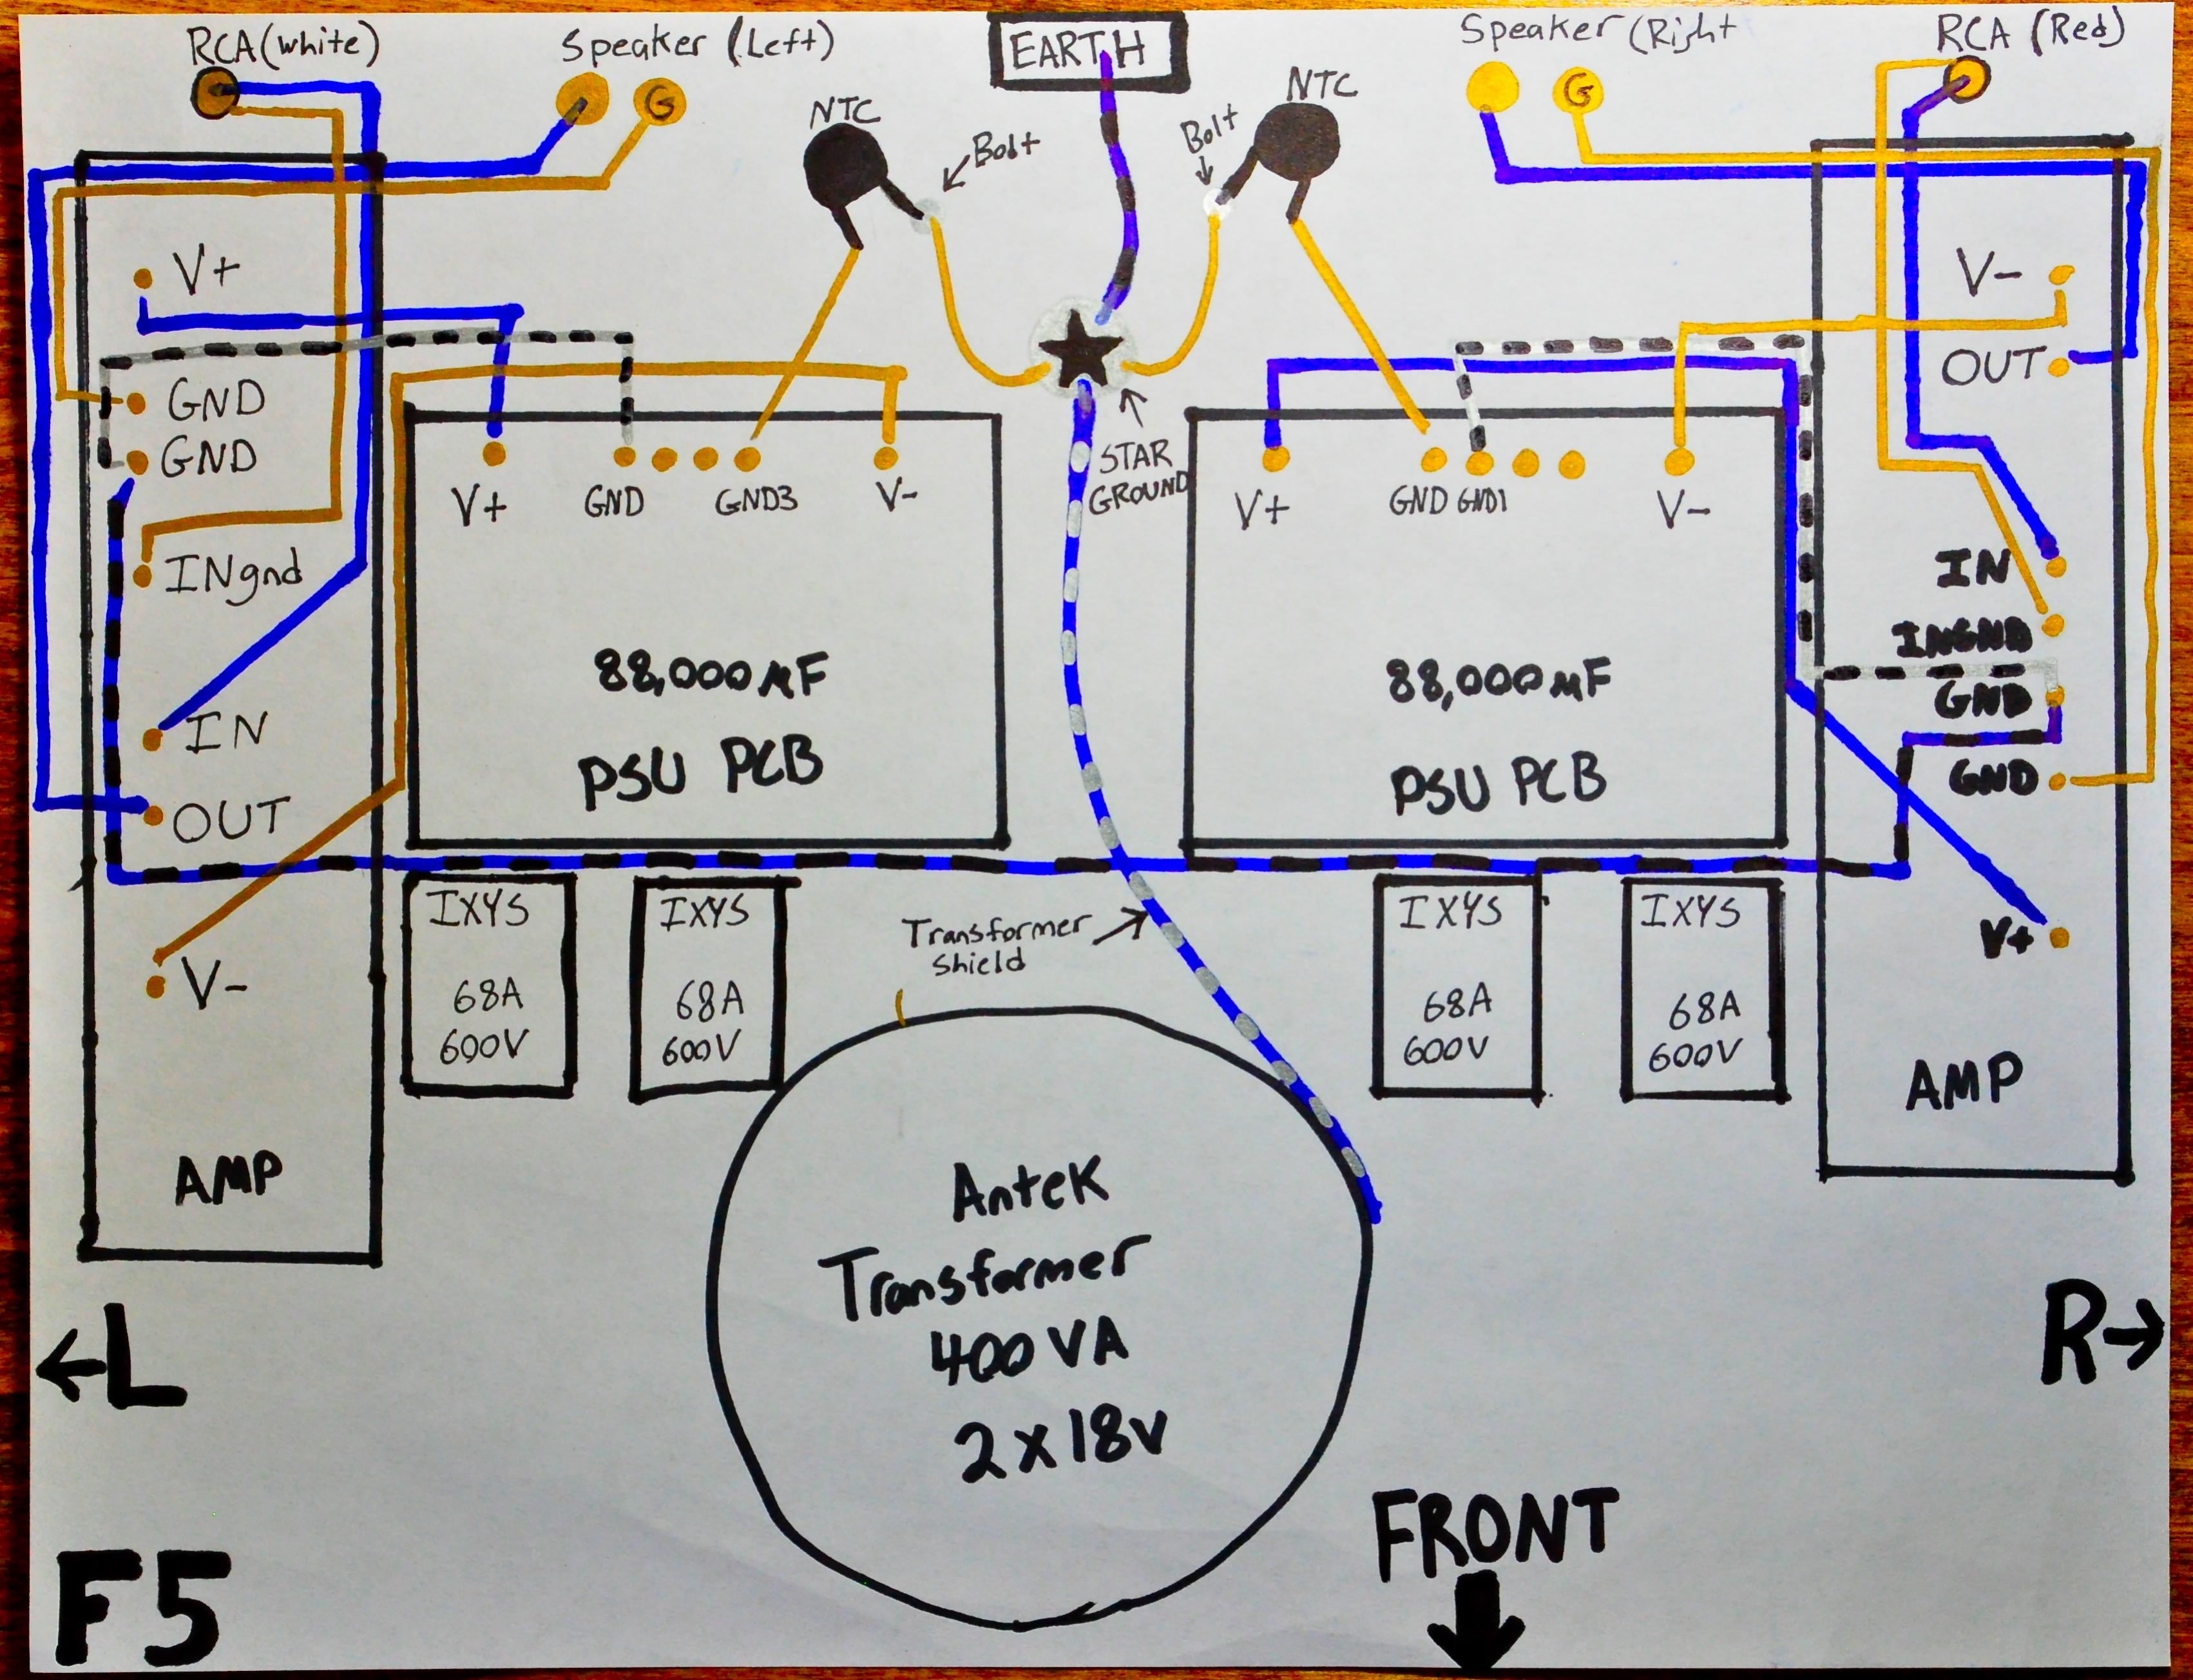 RCA(white)
Speaker (Left)
EARTH
Speaker (Right
RCA (Red)
NTC
Bolt
Bolt
NTC
V+
GND
GND
INgnd
IN
OUT
V-
AMP
V+
GND
GND3
V-
88,000µF
PSU PCB
STAR
GROUND
V+
GND
GND1
V-
88,000µF
PSU PCB
V-
OUT
IN
INGND
GND
GND
V+
AMP
IXYS
68A
600V
IXYS
68A
600V
Transformer
Shield
IXYS
68A
600V
IXYS
68A
600V
Antek
Transformer
400VA
2x18v
←L
R→
FRONT
F5
G
G